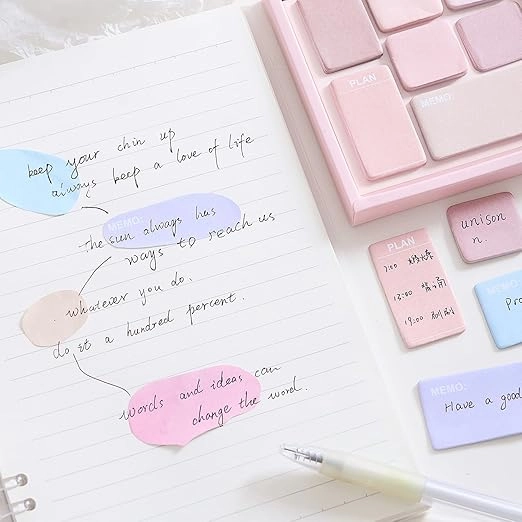 keep your chin up
always keep a love of life
MEMO:
the sun always has
ways to reach us
whatever you do.
do it a hundred percent.
words and ideas can
change the word.
PLAN
MEMO:
PLAN
7:00
12:00
19:00
unison
n.
MEMO:
Pro
MEMO:
Have a good